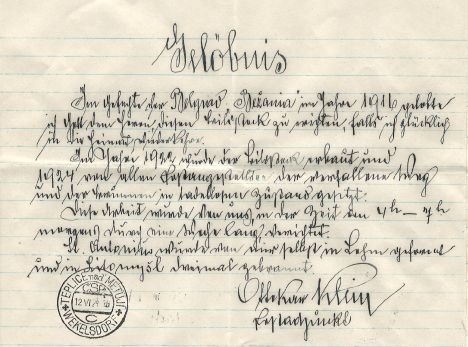 Gelöbnis
Im Gefechte der Belgrad Bezania im Jahre 1916 gelobte
ich Gott dem Herrn, diesen Bildstock zu errichten, falls ich glücklich
in die Heimat wiederkehre.
Im Jahre 1922 wurde der Bildstock erbaut und
1924 von allen Forstangestellten der verfallene Weg
und der Brunnen in tadellosen Zustand gesetzt.
Diese Arbeit wurde von uns in der Zeit von 4h – 7h
morgens durch eine Woche lang verrichtet.
St. Antonius wurde von mir selbst in Lehm geformt
und in dreimal gebrannt.
Ottokar Klein
Forstadjunkt
TEPLICE nad METUJÍ
ČSP
12 VI 24
C
WEKELSDORF